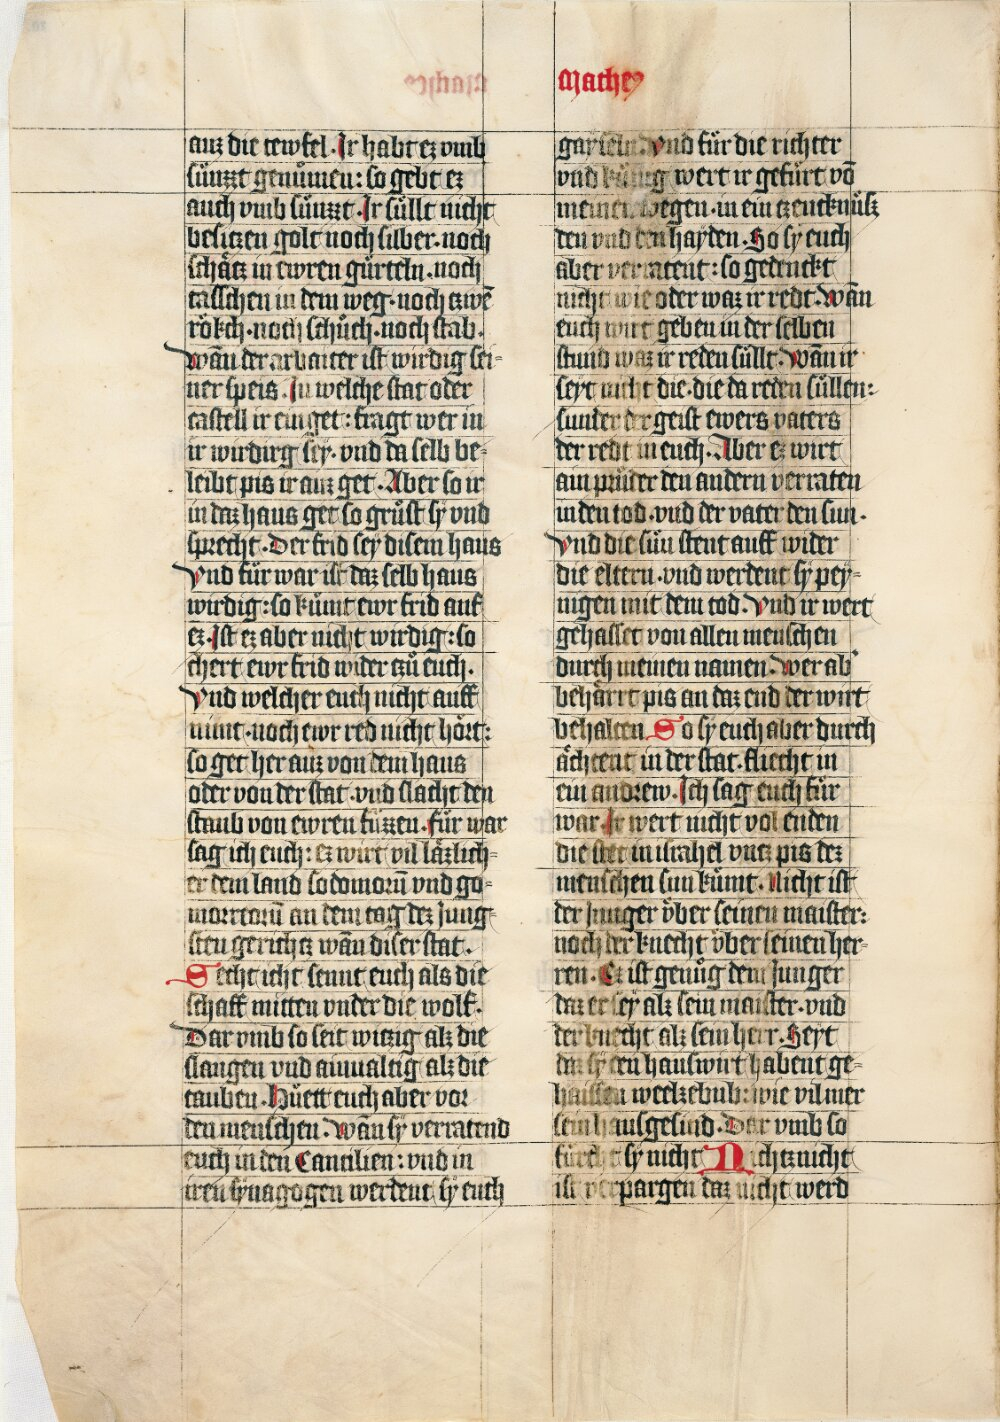 Mathey
auz die tewfel. Ir habt ez vmb
sünzzt genümen: so gebt ez
auch vmb sünzzt. Ir süllt nicht
besitzen golt noch silber. noch
schätz in ewren gürteln. noch
tasschen in dem weg. noch czwē
rökch. noch schüch. noch stab.
Wān der arbaiter ist wirdig sei-
ner speis. In welche stat oder
castell ir ein get: fragt wer in
ir wirdig sey. vnd da selb be-
leibt pis ir auz get. Aber so ir
in daz haus get so grüst sy vnd
sprecht. Der frid sey disem haus
Vnd für war ist daz selb haus
wirdig: so kümt ewr frid auf
ez. Ist ez aber nicht wirdig: so
chert ewr frid wider czů euch.
Vnd welcher euch nicht auff
nimt. noch ewr red nicht hört:
so get her auz von dem haus
oder von der stat. vnd slacht den
staub von ewren füzzen. für war
sag ich euch: ez wirt vil läzlich-
er dem land sodomorū vnd go-
morreorū an dem tag dez Jung-
sten gerichtz wān diser stat.
Secht icht sennt euch als die
schaff mitten vnder die wolf.
Dar vmb so seit witzig alz die
slangen vnd ainualtig alz die
tauben. Hüett euch aber vor
den menschen. Wān sy verratend
euch in den Cantilien: vnd in
iren synagogen werdent sy euch
gayseln. Vnd für die richter
vnd künig wert ir gefürt vō
meinen wegen. in ein czeucknüsz
den vnd den hayden. So sy euch
aber verratent: so gedenckt
nicht wie oder waz ir redt. Wān
euch wirt geben in der selben
stund waz ir reden süllt. Wān ir
seyt nicht die. die da reden süllen:
sunder der geist ewers vaters
der redt in euch. Aber ez wirt
ain prüder den andern verraten
in den tod. vnd der vater den sun.
Vnd die sün stent auff wider
die eltern. vnd werdent sy pey-
nigen mit dem tod. Vnd ir wert
gehasset von allen menschen
durch meinen namen. Wer ab
behärrt pis an daz end der wirt
behalten. So sy euch aber durch
ächtent in der stat. fliecht in
ein andrew. Ich sag euch für
war. Ir wert nicht vol enden
die stet in israhel vntz pis dez
menschen sun kümt. Nicht ist
der Junger über seinen maister:
noch der knecht über seinen her-
ren. Ez ist genüg dem Junger
daz er sey alz sein maister. vnd
der knecht alz sein herr. Seyt
daz sy den hauswirt habent ge-
haissen weelzebub: wie vil mer
sein hausgesind. Dar vmb so
fürcht sy nicht Nichtz nicht
ist verpargen daz nicht werd